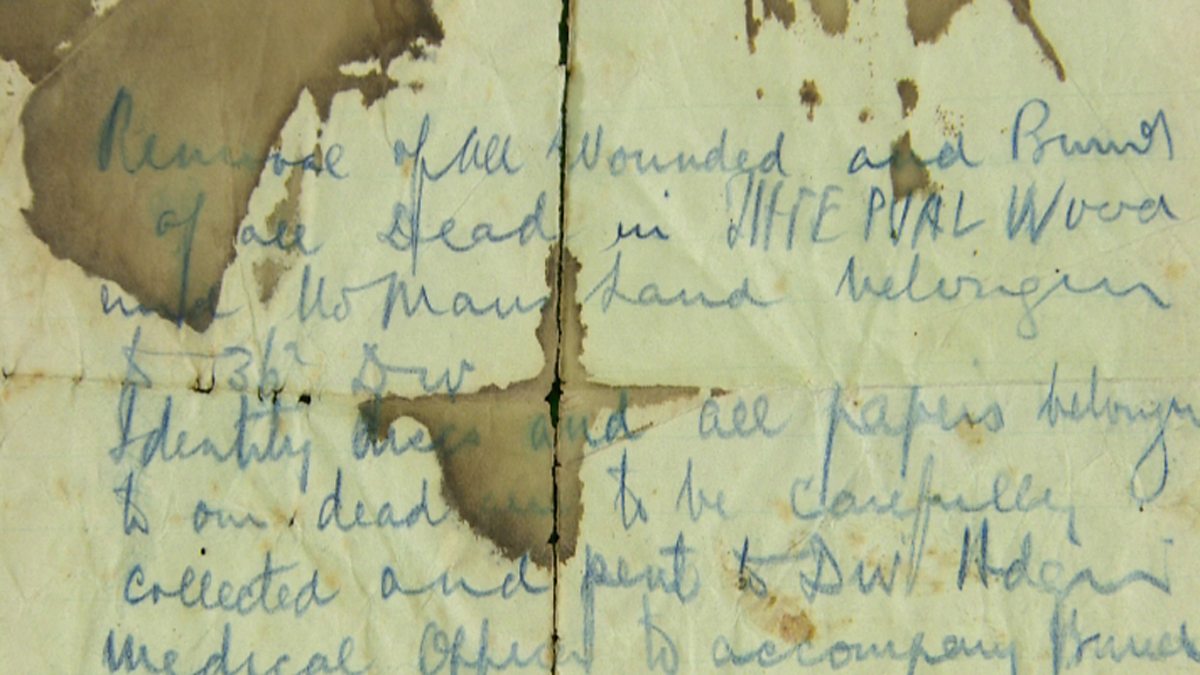 Removal of All Wounded and Burial
of all Dead in THIEPVAL Wood
and No Mans Land belonging
to 36th Div
Identity discs and all papers belonging
to our dead are to be carefully
collected and sent to Div Hdqrs
Medical Officer to accompany Burial